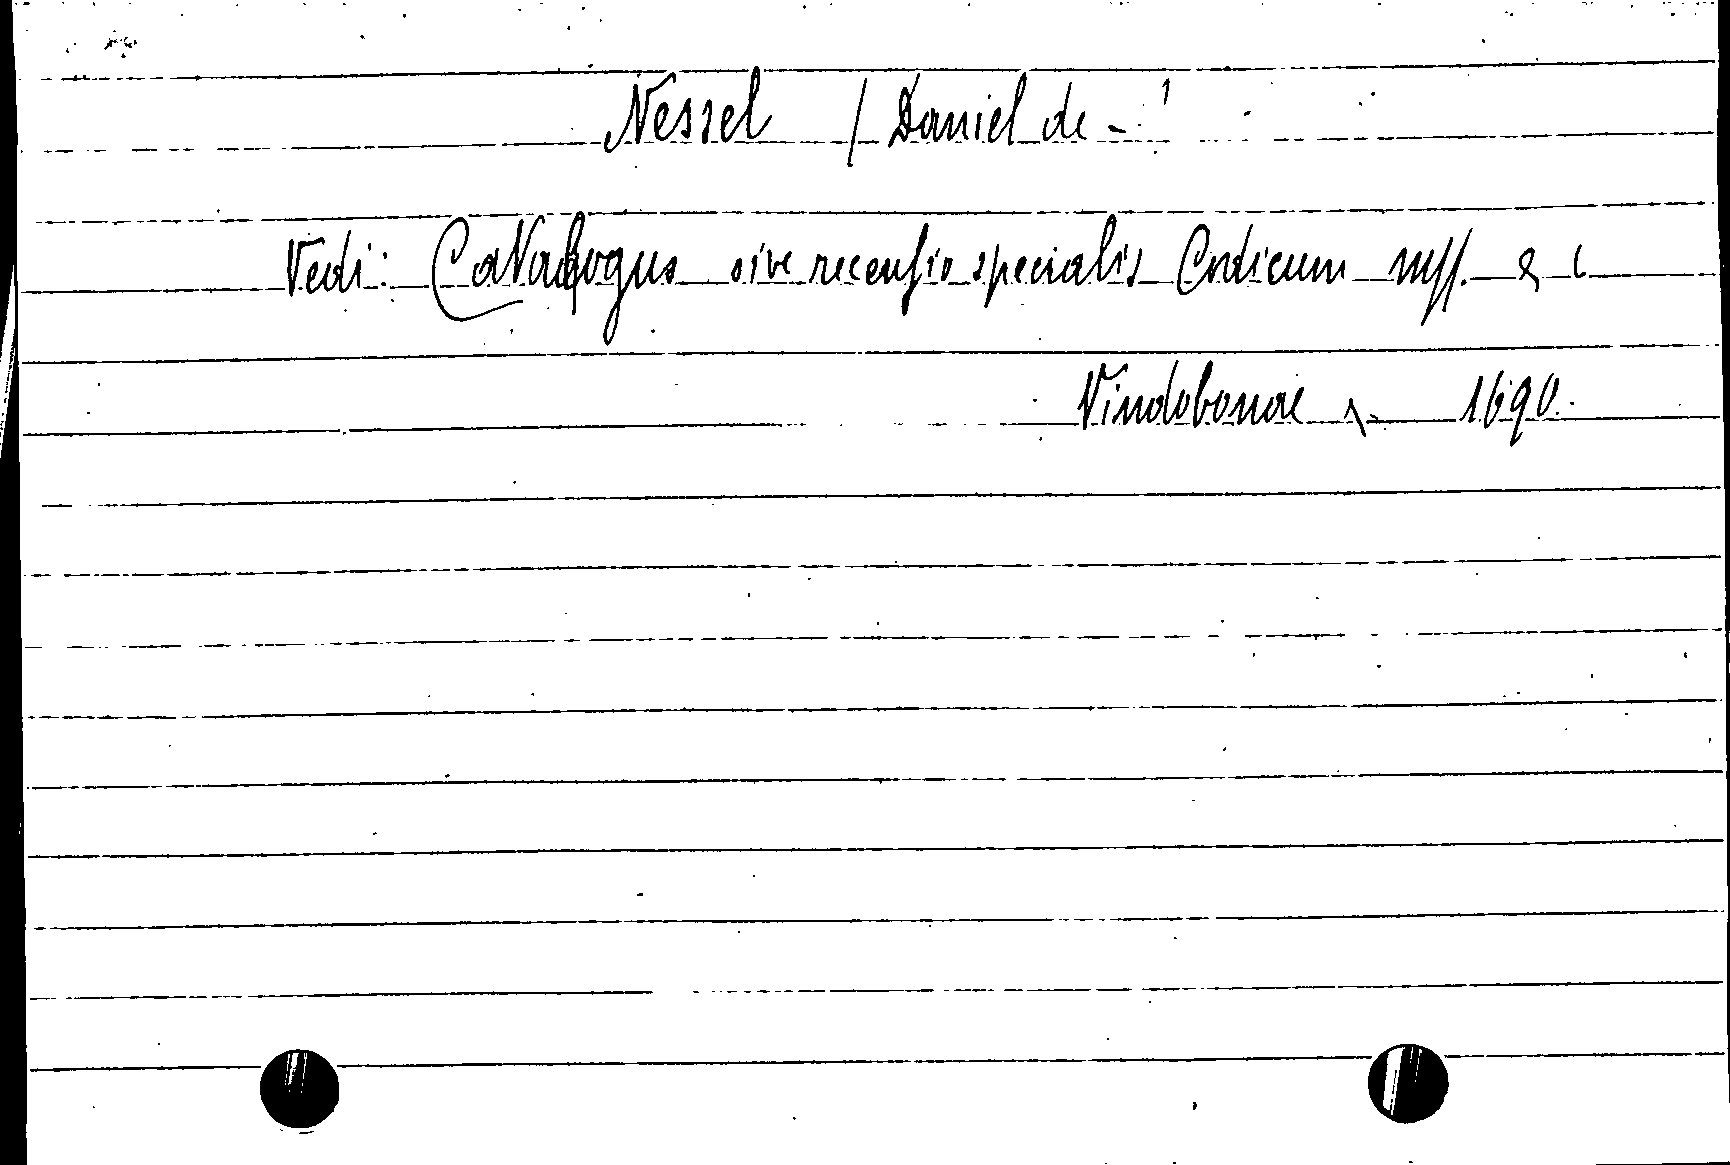 Nessel / Daniel de - '
Vedi: Catalogus sive recensio specialis Codicum mss. & c
Vindobonae, 1690.